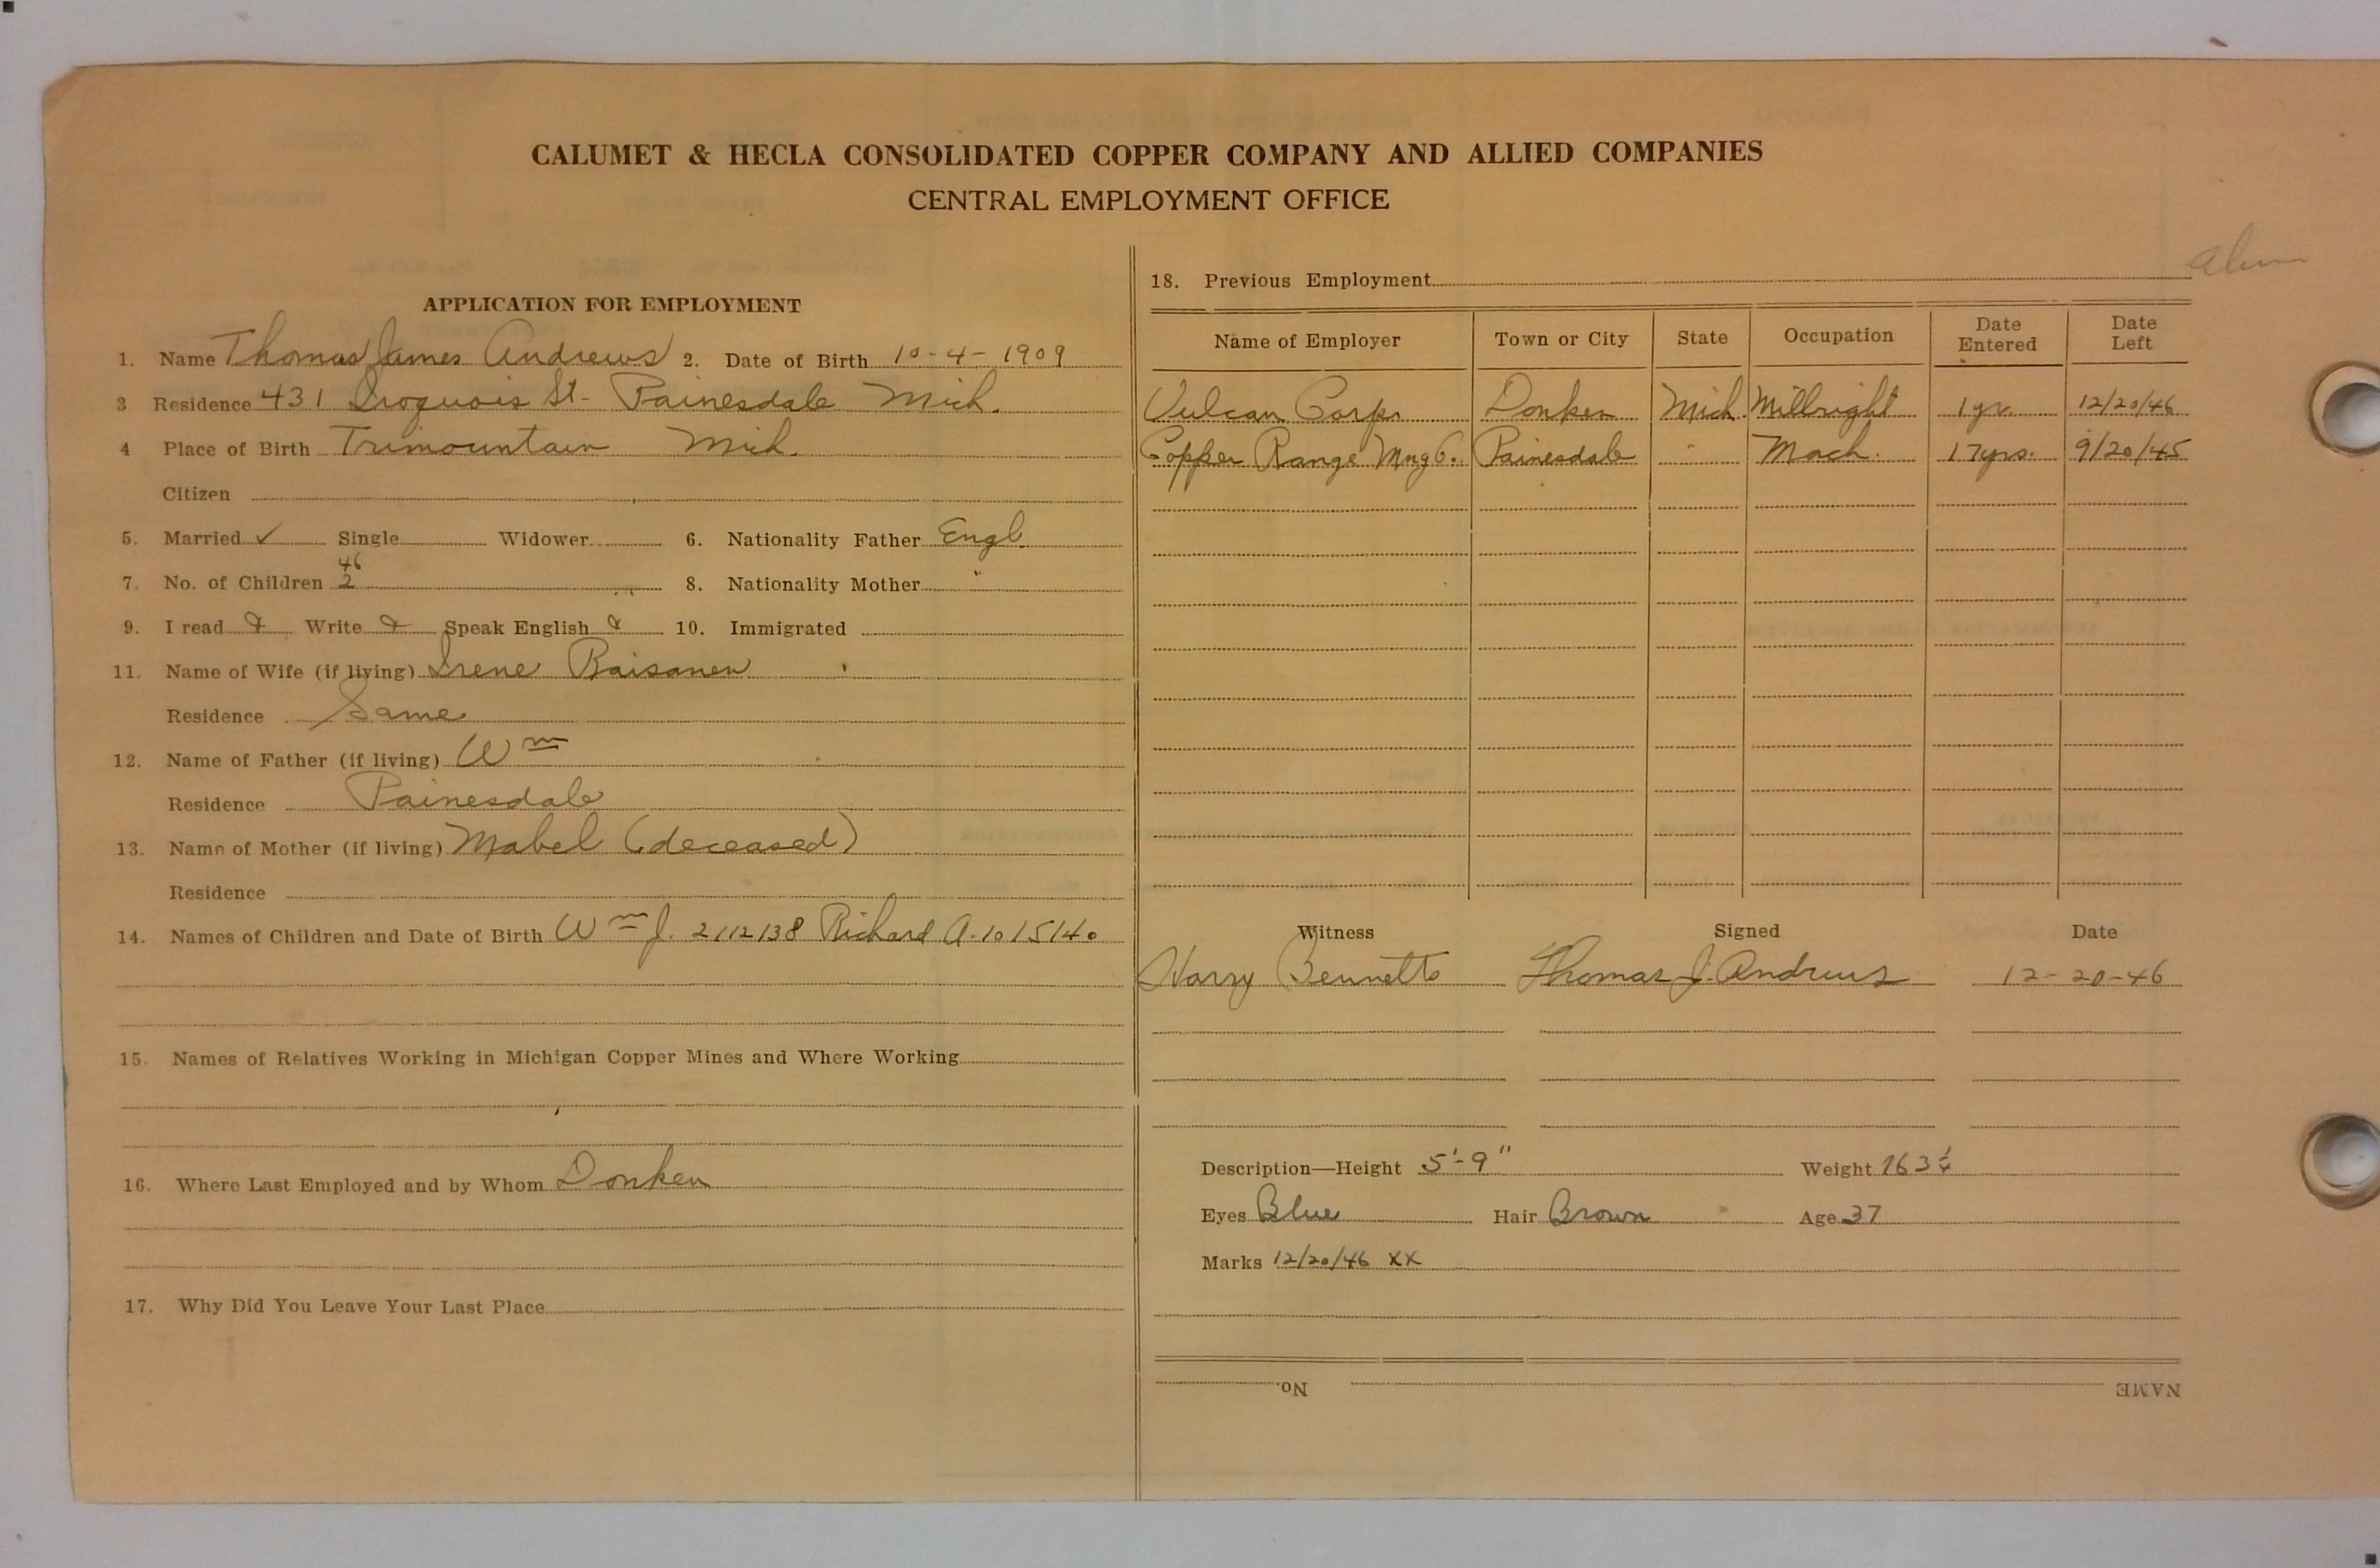 CALUMET & HECLA CONSOLIDATED COPPER COMPANY AND ALLIED COMPANIES
CENTRAL EMPLOYMENT OFFICE
APPLICATION FOR EMPLOYMENT
1. Name Thomas James Andrews 2. Date of Birth 10-4-1909
3 Residence 431 Iroquois St- Painesdale Mich.
4 Place of Birth Trimountain Mich.
Citizen
5. Married ✓ Single Widower 6. Nationality Father Engl.
46
7. No. of Children 2 8. Nationality Mother "
9. I read Write Speak English 10. Immigrated
11. Name of Wife (if living) Irene Raisanen
Residence Same
12. Name of Father (if living) Wm
Residence Painesdale
13. Name of Mother (if living) Mabel (deceased)
Residence
14. Names of Children and Date of Birth Wm J. 2/12/38 Richard A. 10/5/40
15. Names of Relatives Working in Michigan Copper Mines and Where Working
16. Where Last Employed and by Whom Donken
17. Why Did You Leave Your Last Place
18. Previous Employment
Name of Employer Town or City State Occupation Date Entered Date Left
Vulcan Corp. Donken Mich. Millright 1 yr. 12/20/46
Copper Range Mng Co. Painesdale " Mach. 17 yrs. 9/20/45
Witness Signed Date
Harry Bennetts Thomas J. Andrews 12-20-46
Description—Height 5'-9" Weight 163
Eyes Blue Hair Brown Age 37
Marks 12/20/46 XX
No. NAME